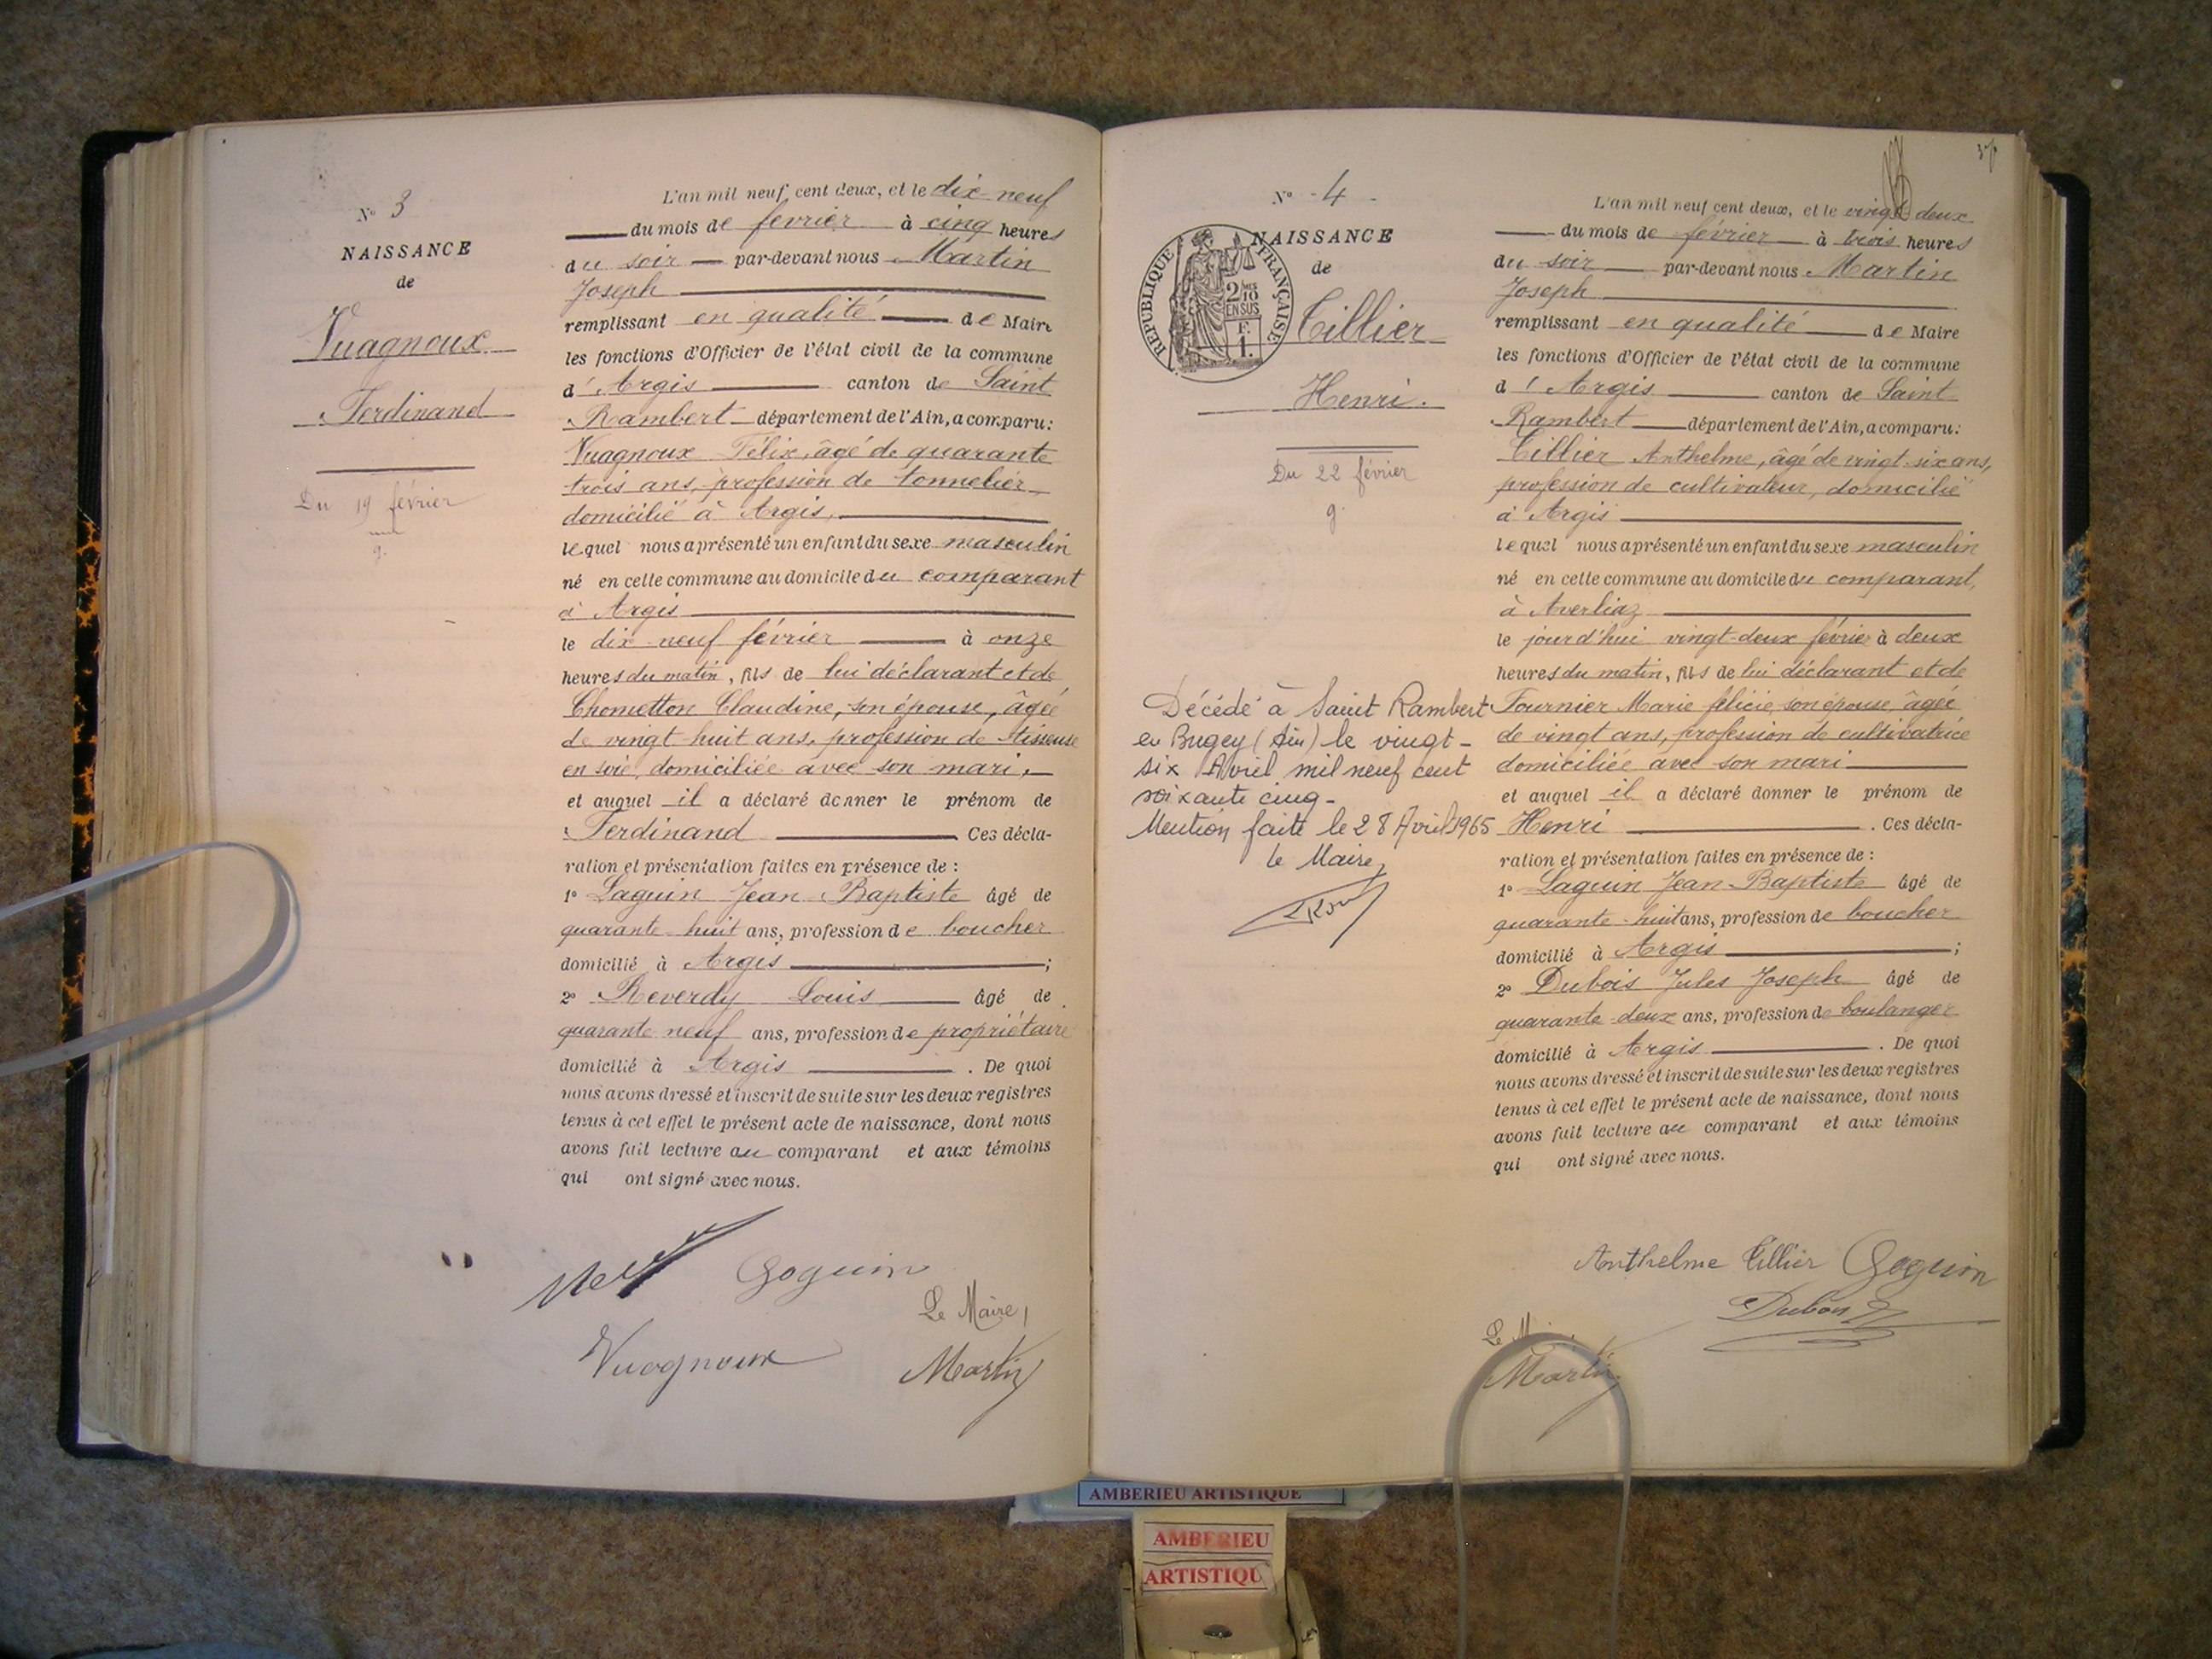 Nº 3
NAISSANCE
de
Vuagnoux
Ferdinand
Du 19 février
g.
L'an mil neuf cent deux, et le dix-neuf
du mois de février à cinq heures
du soir par-devant nous Martin
Joseph
remplissant en qualité de Maire
les fonctions d'Officier de l'état civil de la commune
d'Argis canton de Saint
Rambert département de l'Ain, a comparu:
Vuagnoux Félix, âgé de quarante
trois ans, profession de tonnelier
domicilié à Argis,
lequel nous a présenté un enfant du sexe masculin
né en cette commune au domicile du comparant
à Argis
le dix neuf février à onze
heures du matin, fils de lui déclarant et de
Chometton Claudine, son épouse, âgée
de vingt-huit ans, profession de tisseuse
en soie, domiciliée avec son mari,
et auquel il a déclaré donner le prénom de
Ferdinand Ces décla-
ration et présentation faites en présence de :
1º Laguin Jean-Baptiste âgé de
quarante-huit ans, profession de boucher
domicilié à Argis ;
2º Reverdy Louis âgé de
quarante neuf ans, profession de propriétaire
domicilié à Argis . De quoi
nous avons dressé et inscrit de suite sur les deux registres
tenus à cet effet le présent acte de naissance, dont nous
avons fait lecture au comparant et aux témoins
qui ont signé avec nous.
Goguin
Le Maire,
Vuagnoux
Martin
Nº 4
NAISSANCE
de
RÉPUBLIQUE FRANÇAISE
2/10
EN SUS
F.
1.
Tillier
Henri.
Du 22 février
g.
Décédé à Saint Rambert
en Bugey (Ain) le vingt-
six Avril mil neuf cent
soixante cinq-
Mention faite le 28 Avril 1965
le Maire,
L'an mil neuf cent deux, et le vingt deux
du mois de février à trois heures
du soir par-devant nous Martin
Joseph
remplissant en qualité de Maire
les fonctions d'Officier de l'état civil de la commune
d'Argis canton de Saint
Rambert département de l'Ain, a comparu:
Tillier Anthelme, âgé de vingt-six ans,
profession de cultivateur, domicilié
à Argis
lequel nous a présenté un enfant du sexe masculin
né en cette commune au domicile du comparant,
à Averliaz
le jourd'hui vingt-deux février à deux
heures du matin, fils de lui déclarant et de
Fournier Marie félicie, son épouse, âgée
de vingt ans, profession de cultivatrice
domiciliée avec son mari
et auquel il a déclaré donner le prénom de
Henri . Ces décla-
ration et présentation faites en présence de :
1º Laguin Jean-Baptiste âgé de
quarante-huit ans, profession de boucher
domicilié à Argis ;
2º Dubois Jules Joseph âgé de
quarante-deux ans, profession de boulanger
domicilié à Argis . De quoi
nous avons dressé et inscrit de suite sur les deux registres
tenus à cet effet le présent acte de naissance, dont nous
avons fait lecture au comparant et aux témoins
qui ont signé avec nous.
Anthelme Tillier Goguin
Dubois
Martin
AMBERIEU ARTISTIQUE
AMBERIEU
ARTISTIQU